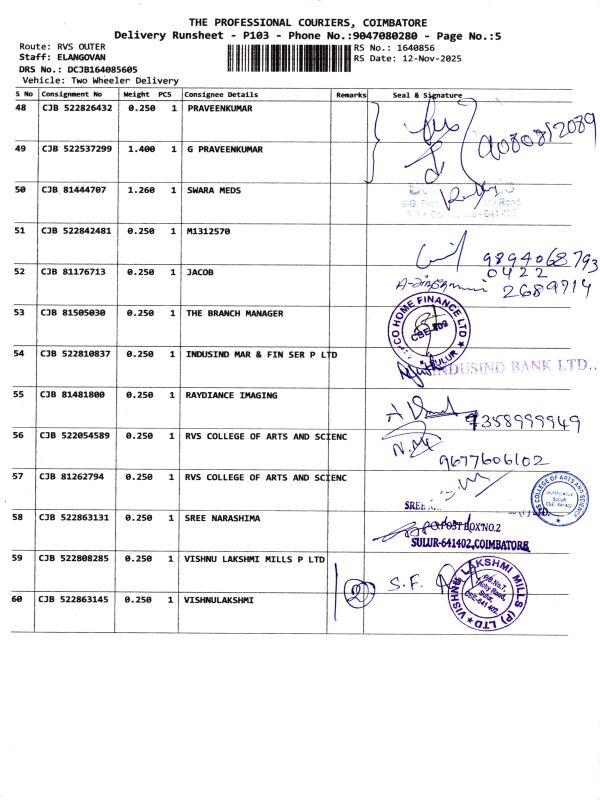 THE PROFESSIONAL COURIERS, COIMBATORE
Delivery Runsheet - P103 - Phone No.:9047080280 - Page No.:5
Route: RVS OUTER
RS No.: 1640856
Staff: ELANGOVAN
RS Date: 12-Nov-2025
DRS No.: DCJB164085605
Vehicle: Two Wheeler Delivery
S No Consignment No Weight PCS Consignee Details Remarks Seal & Signature
48 CJB 522826432 0.250 1 PRAVEENKUMAR
9080812089
49 CJB 522537299 1.400 1 G PRAVEENKUMAR
50 CJB 81444707 1.260 1 SWARA MEDS
Road,
51 CJB 522842481 0.250 1 M1312570
9894068793
52 CJB 81176713 0.250 1 JACOB
0422
2689914
53 CJB 81505030 0.250 1 THE BRANCH MANAGER
CO HOME FINANCE LTD
CBE-402
SULUR
54 CJB 522810837 0.250 1 INDUSIND MAR & FIN SER P LTD
INDUSIND BANK LTD.,
55 CJB 81481800 0.250 1 RAYDIANCE IMAGING
7358999949
56 CJB 522054589 0.250 1 RVS COLLEGE OF ARTS AND SCIENC
9677606102
57 CJB 81262794 0.250 1 RVS COLLEGE OF ARTS AND SCIENC
COLLEGE OF ARTS AND SCIENCE
SULUR
CBE-641402
SREE
58 CJB 522863131 0.250 1 SREE NARASHIMA
POST BOX NO.2
SULUR-641402, COIMBATORE
59 CJB 522808285 0.250 1 VISHNU LAKSHMI MILLS P LTD
2 S.F.
VISHNU LAKSHMI MILLS (P) LTD
CBE-641 402.
60 CJB 522863145 0.250 1 VISHNULAKSHMI